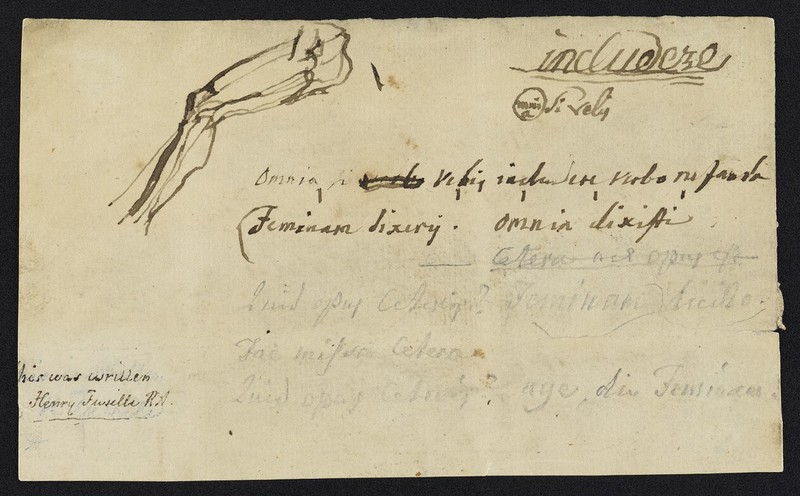 includere
omnia si velis
Omnia si velis includere verbo nefanda
Feminam dixeris. omnia dixisti
Cetera nil opus est
Quid opus Ceteris? Feminam
Fac missa Cetera
Quid opus Ceteris? age, dic Feminam.
his was written
Henry Fuseli R.A.